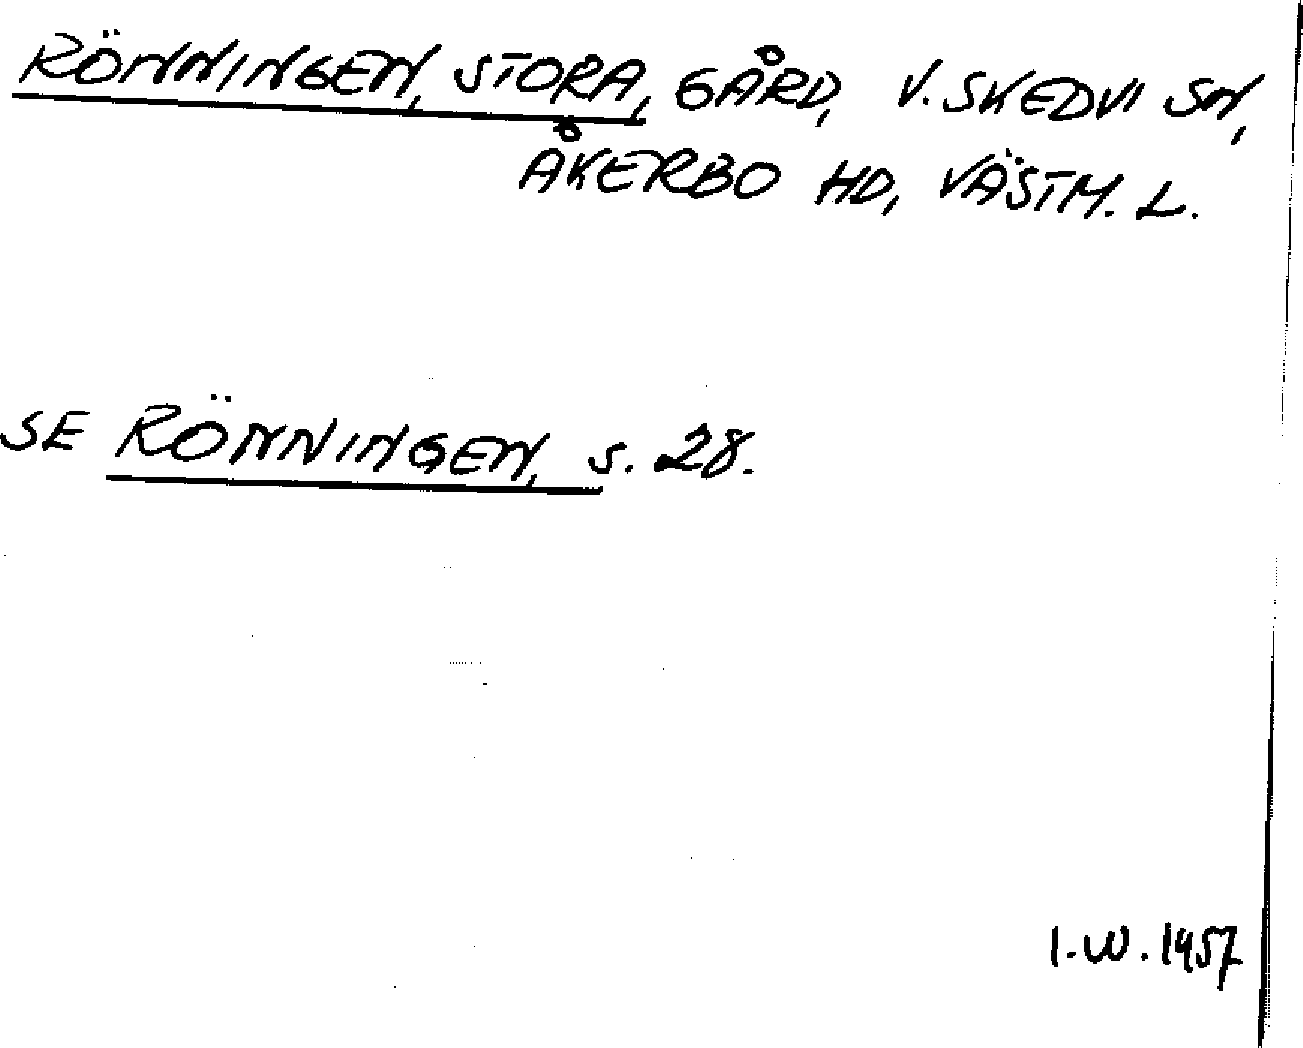 RÖNNINGEN, STORA, GÅRD, V. SKEDVI SN,
ÅKERBO HD, VÄSTM. L.
SE RÖNNINGEN, S. 28.
I.W. 1957